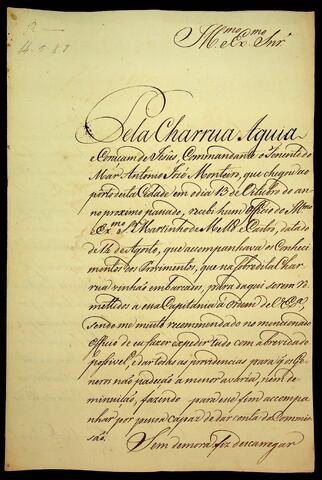 Ill.mo Ex.mo Snr.
Pela Charrua Aguia
e Coraçam de Jesus, Commandante o Tenente do
Mar Antonio José Monteiro, que chegou ao
porto desta Cidade em o dia 13 de Outubro do an-
no proximo passado, recebi hum Officio do Ill.mo
Ex.mo S.r Martinho de Mello e Castro, datado
de 16 de Agosto, que acompanhava os Conheci-
mentos dos Provimentos, que na sobredita Char-
rua vinhaõ embarcados, para daqui serem re-
mettidos a essa Capitania á ordem de V. Ex.a,
sendo me muito recommendado no mencionado
Officio de eu fazer expedir tudo com a brevidade
possivel, e dar todas as providencias para q os Ge-
neros naõ padeçaõ a menor avaria, nem di-
minuiçaõ, fazendo para esse fim accompa-
nhar por pessoa capaz de dar conta da Commis-
saõ.
Sem demora fiz descarregar